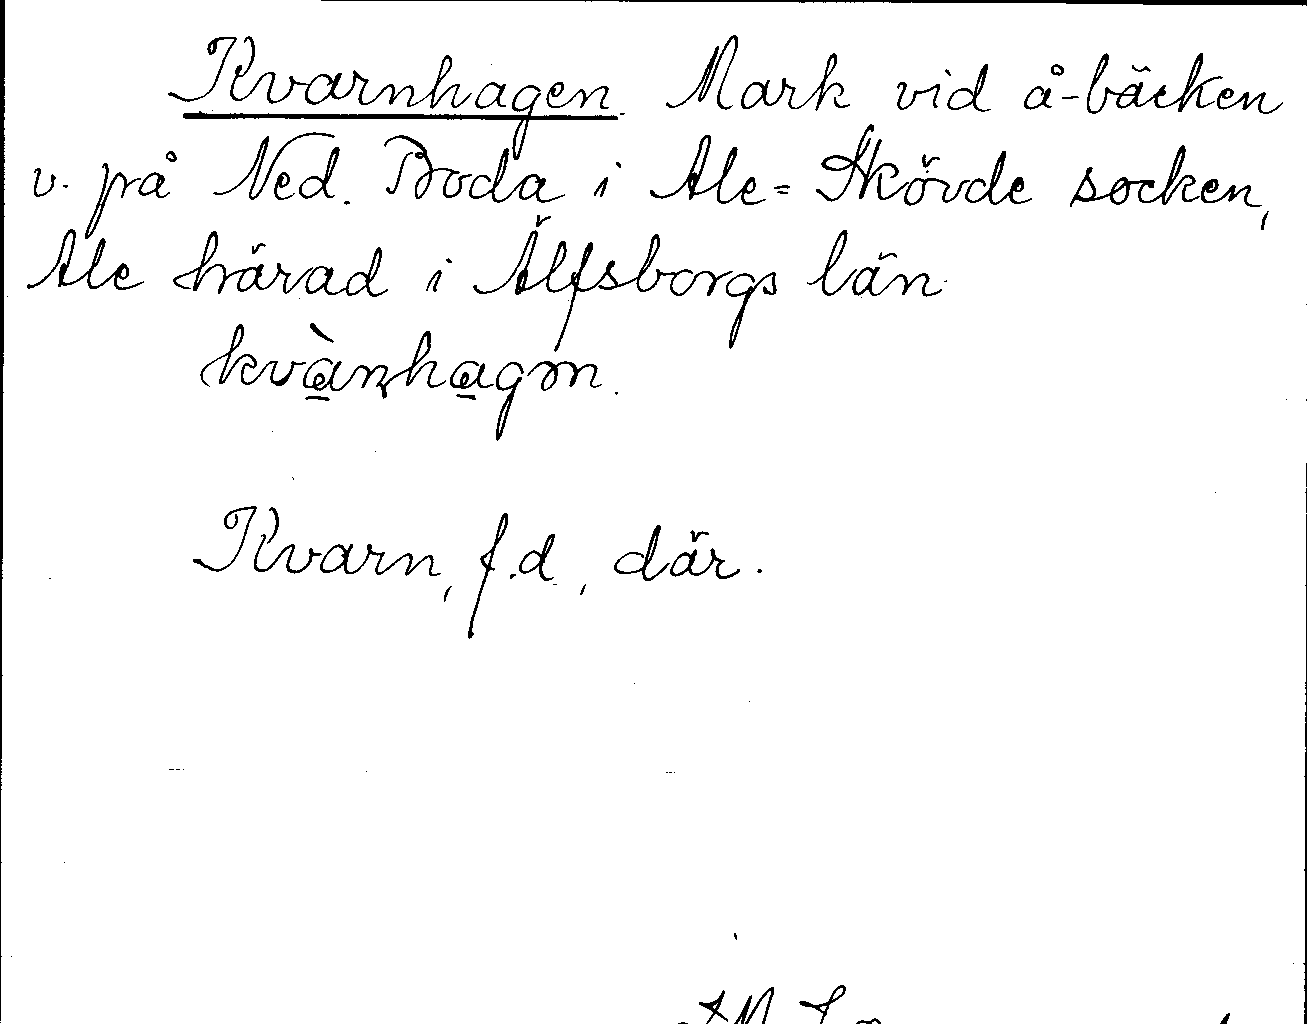 Kvarnhagen Mark vid å-bäcken
v. på Ned. Boda i Ale-Skövde socken,
Ale härad i Älfsborgs län
Kvarn, f.d., där.